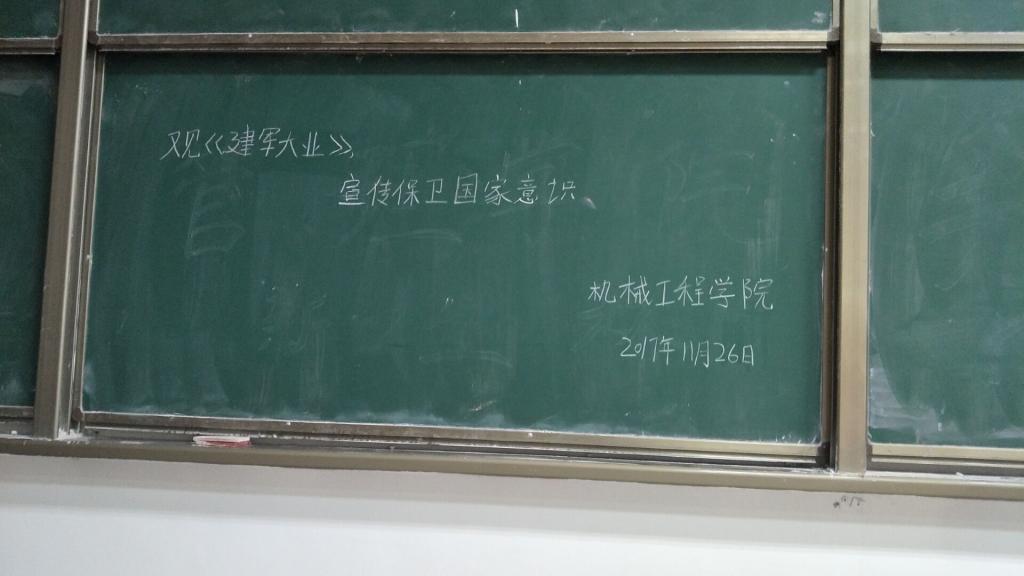 观《建军大业》,
宣传保卫国家意识、
机械工程学院
2017年11月26日